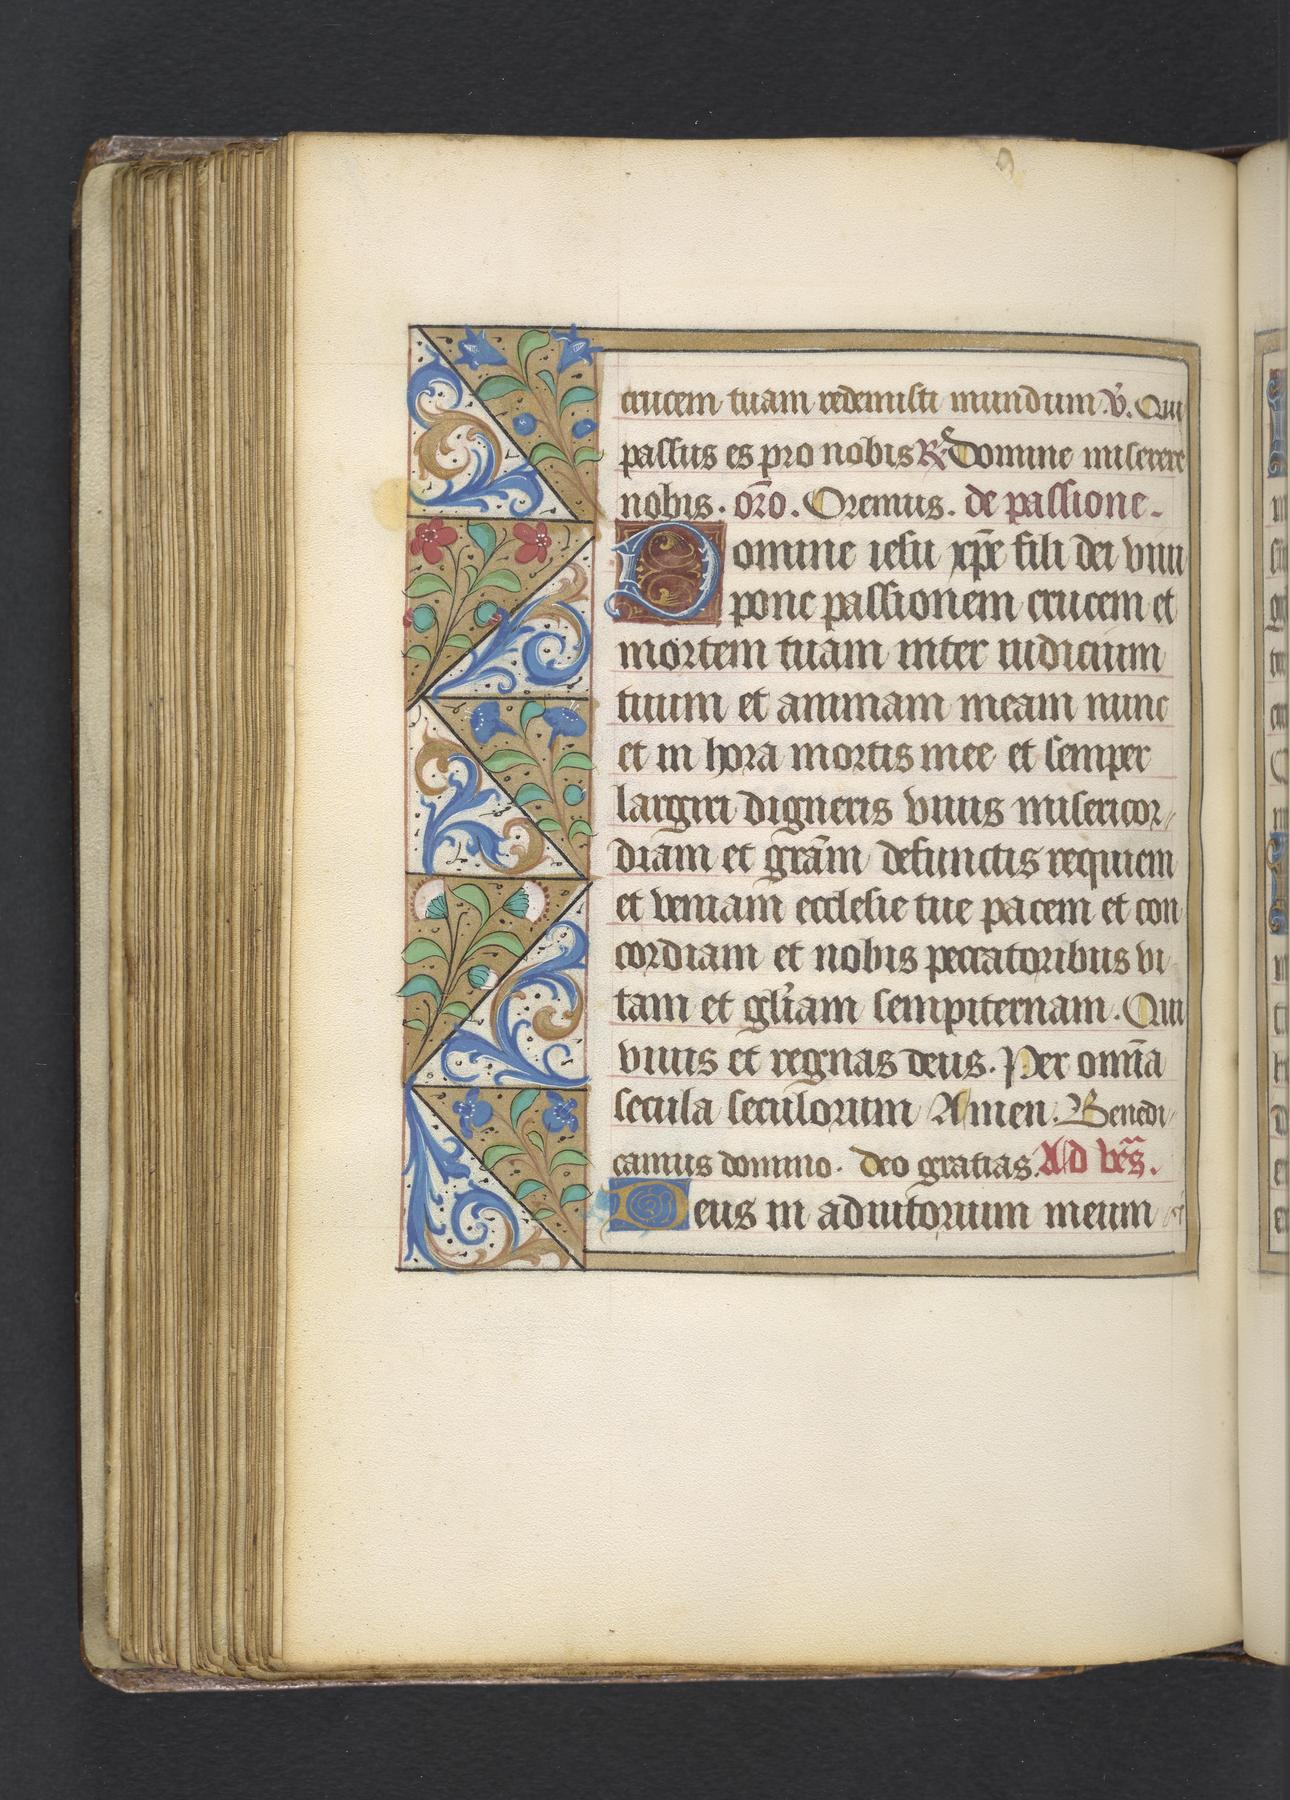 crucem tuam redemisti mundum. v̄. Qui
passus es pro nobis R̸ Domine miserere
nobis. or̄o. Oremus. de passione.
Domine iesu xp̄e fili dei viui
pone passionem crucem et
mortem tuam inter iudicium
tuum et animam meam nunc
et in hora mortis mee et semper
largiri digneris viuis misericor
diam et grām defunctis requiem
et veniam ecclesie tue pacem et con
cordiam et nobis peccatoribus vi
tam et gl̄iam sempiternam. Qui
viuis et regnas deus. Per om̄ia
secula seculorum Amen. Benedi
camus domino. deo gratias. Ad vēs.
Deus in adiutorium meum